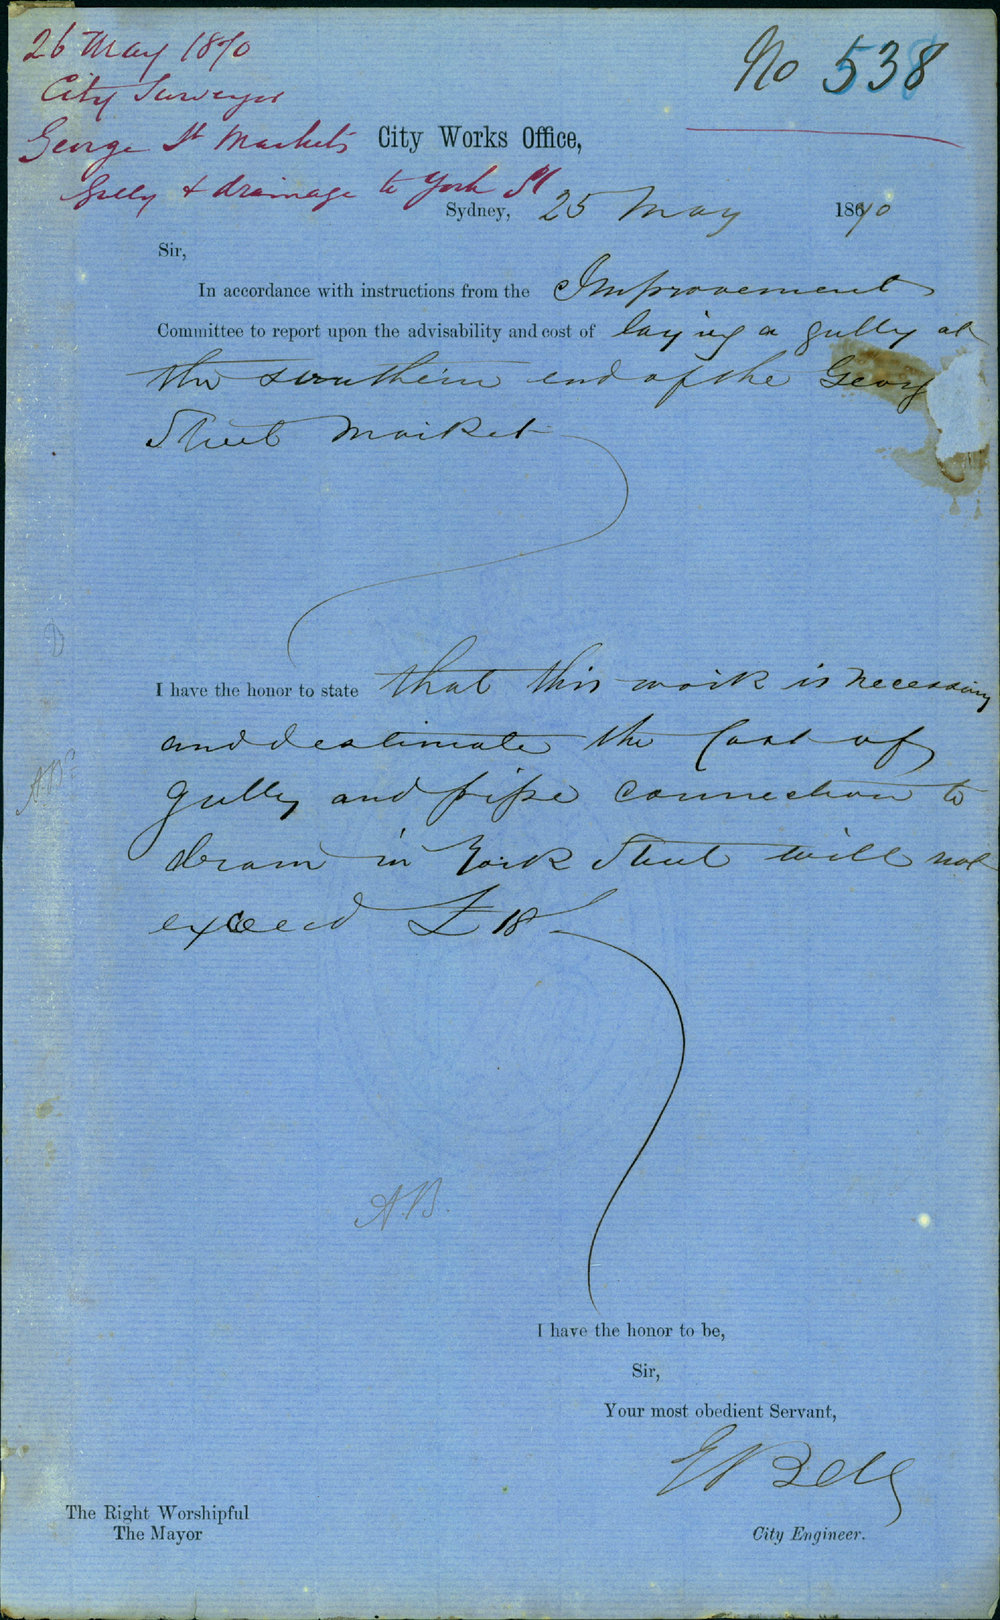 26 May 1870
City Surveyor
George St Markets
Gully & drainage to York St
No 538
City Works Office,
Sydney, 25 May 1870
Sir,
In accordance with instructions from the Improvement
Committee to report upon the advisability and cost of laying a gully at
the southern end of the Georg
Street Market
I have the honor to state that this work is necessary
and estimate the Cost of
gully and pipe connection to
drain in York Street will not
exceed £18
A.B.
I have the honor to be,
Sir,
Your most obedient Servant,
E Bell
City Engineer.
The Right Worshipful
The Mayor